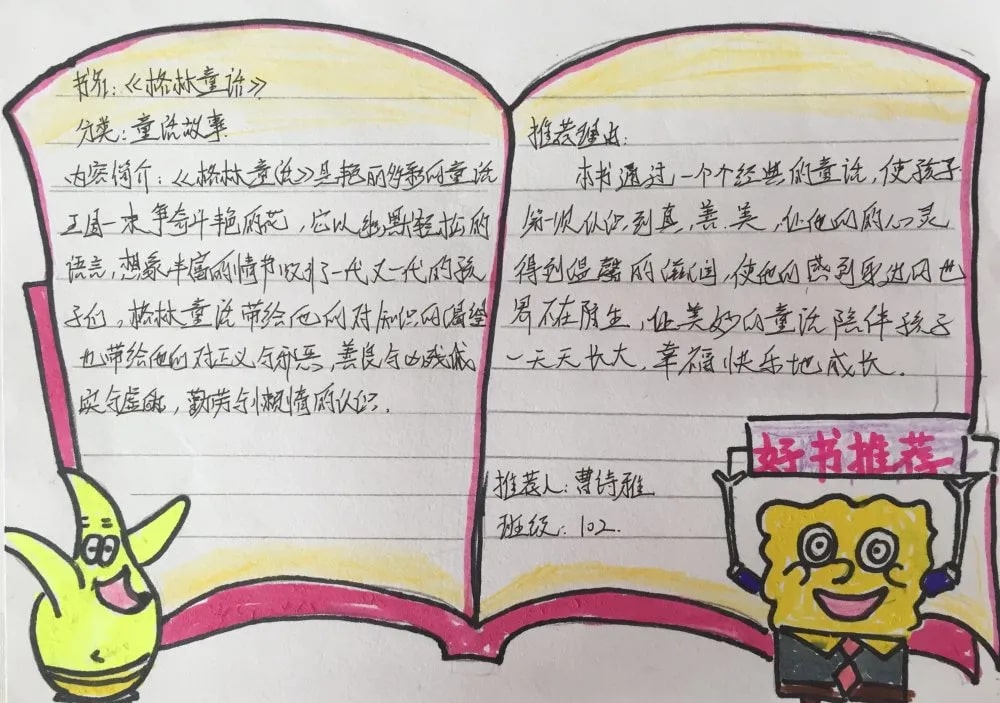 书名:《格林童话》
分类:童话故事
内容简介:《格林童话》是艳丽多彩的童话
王国一朵争奇斗艳的花,它以幽默轻松的
语言,想象丰富的情节吸引了一代又一代的孩
子们,格林童话带给他们对知识的渴望
也带给他们对正义与邪恶,善良与凶残诚
实与虚,勤劳与懒惰的认识.
推荐理由:
本书通过一个个经典的童话,使孩子
第一次认识到真、善、美,让他们的心灵
得到温馨的滋润,使他们感到身边的世
界不在陌生,让美妙的童话陪伴孩子
一天天长大,幸福快乐地成长.
推荐人:曹诗雅
班级:102.
好书推荐